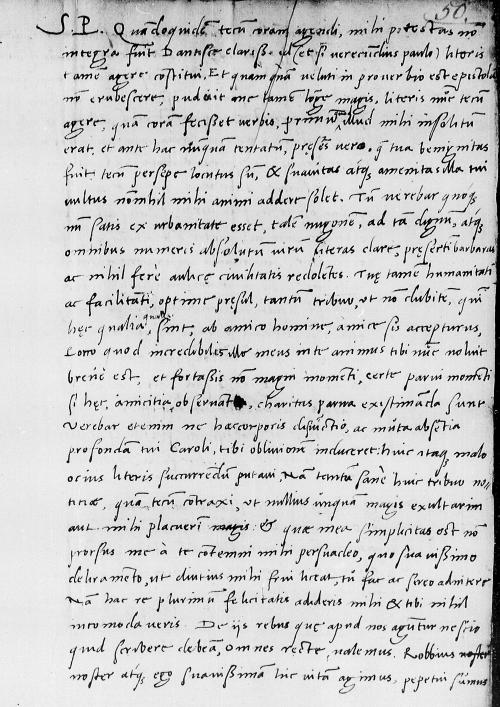 50.
S. P. Quandoquidem tecum coram agendi, mihi potestas nō
integra fuit Dantisce clariss. id (et si verecundius paulo) literis
tamē agere cōstitui, Et quamquā veluti in proverbio est epistolā
nō erubescere, puduit me tamē lōge magis, literis nūc tecum
agere, quam coram fecisset verbis, primū illud mihi insolitū
erat, et ante hac nunquam tentatum, pręsēs vero, q̄ tua benignitas
fuit, tecum persepe locutus sum, & suavitas atq̧ amenitas illa tui
vultus nōnihil mihi animi addere solet. Tum verebar quoq̧
nū satis ex urbanitate esset, talē nugonē, ad tā dignū, atq̧
omnibus numeris absolutum virū literas dare, pręsertī barbaras
ac nihil ferè aulicę civilitatis redolētes. Tuę tamē humanitati
ac facilitati, optime pręsul, tantum tribuo, ut nō dubitē, quī
hęc qualia qualia sint, ab amico homine, amice sis accepturus,
Loco quod incredibilis ille meus in te animus tibi nūc voluit
brevè est, et fortassis nō magni momēti, certe parvi momenti
si hęc, amicitia, observantia, charitas parva existimanda sunt
Verebar etenim ne hæc corporis disiūctio, ac muta absētia
profundam tui Caroli, tibi oblivionem induceret: huic itaq̧ malo
ocius literis succurrēdū putavi, Nā tantū sanè huic tribuo no-
titiæ, quam tecum cōtraxi, ut nullius unquam magis exultarim
aut mihi placuerim & quæ mea simplicitas est nō
prorsus me à te cōtemni mihi persuadeo, quo suavissimo
deliramēto, ut diutius mihi frui liceat, tu fac ac sereo adnitere
Nam hac re plurimum felicitatis addideris mihi & tibi nihil
incommodaveris. De iis rebus quę apud nos aguntur nescio
quid scribere debeam, omnes recte valemus. Robbius
noster atq̧ ego suavissimam hic vitam agimus, perpetui sumus